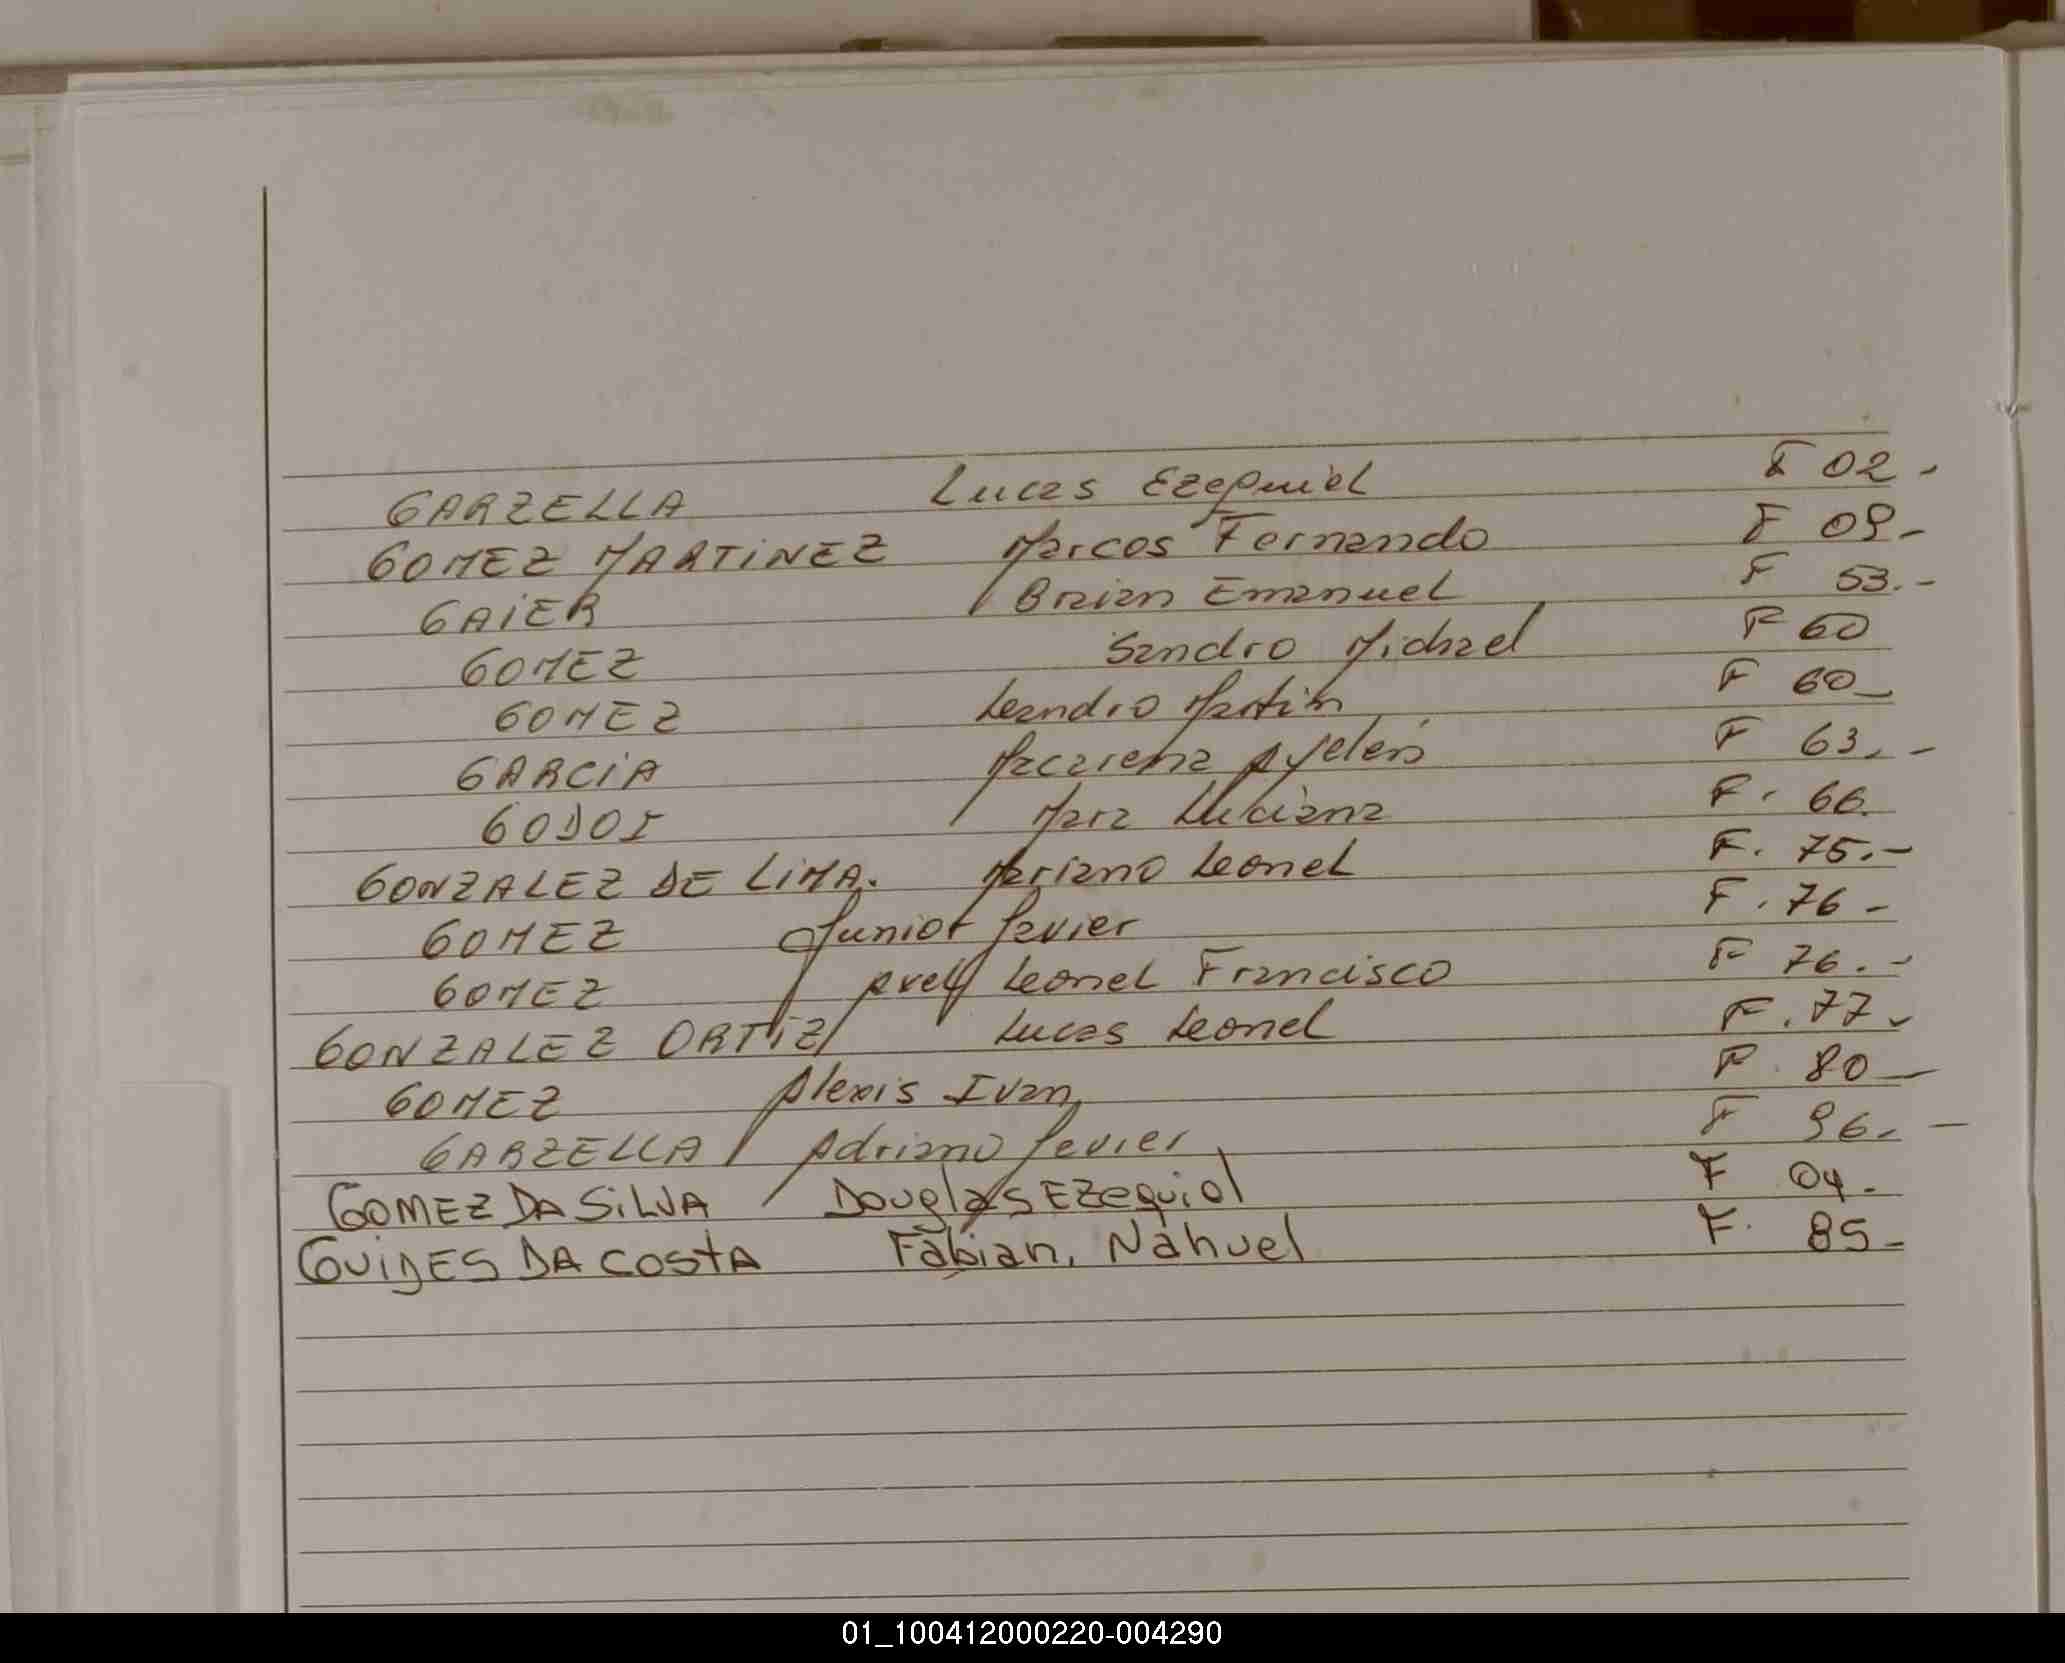 GARZELLA Lucas Ezequiel F 02-
GOMEZ MARTINEZ Marcos Fernando F 09-
GAIER Brian Emanuel F 53.-
GOMEZ Sandro Michael F 60
GOMEZ Leandro Martin F 60-
GARCIA Macarena Ayelen F 63.-
GODOI Mara Luciana F. 66.
GONZALEZ DE LIMA. Mariano Leonel F. 75.-
GOMEZ Junior Javier F. 76-
GOMEZ Leonel Francisco F 76.-
GONZALEZ ORTIZ Lucas Leonel F. 77-
GOMEZ Alexis Ivan F. 80-
GARZELLA Adriano Javier F 96.-
GOMEZ DA SILVA Douglas Ezequiel F 04.
GUIDES DA COSTA Fabian, Nahuel F. 85-
01_100412000220-004290